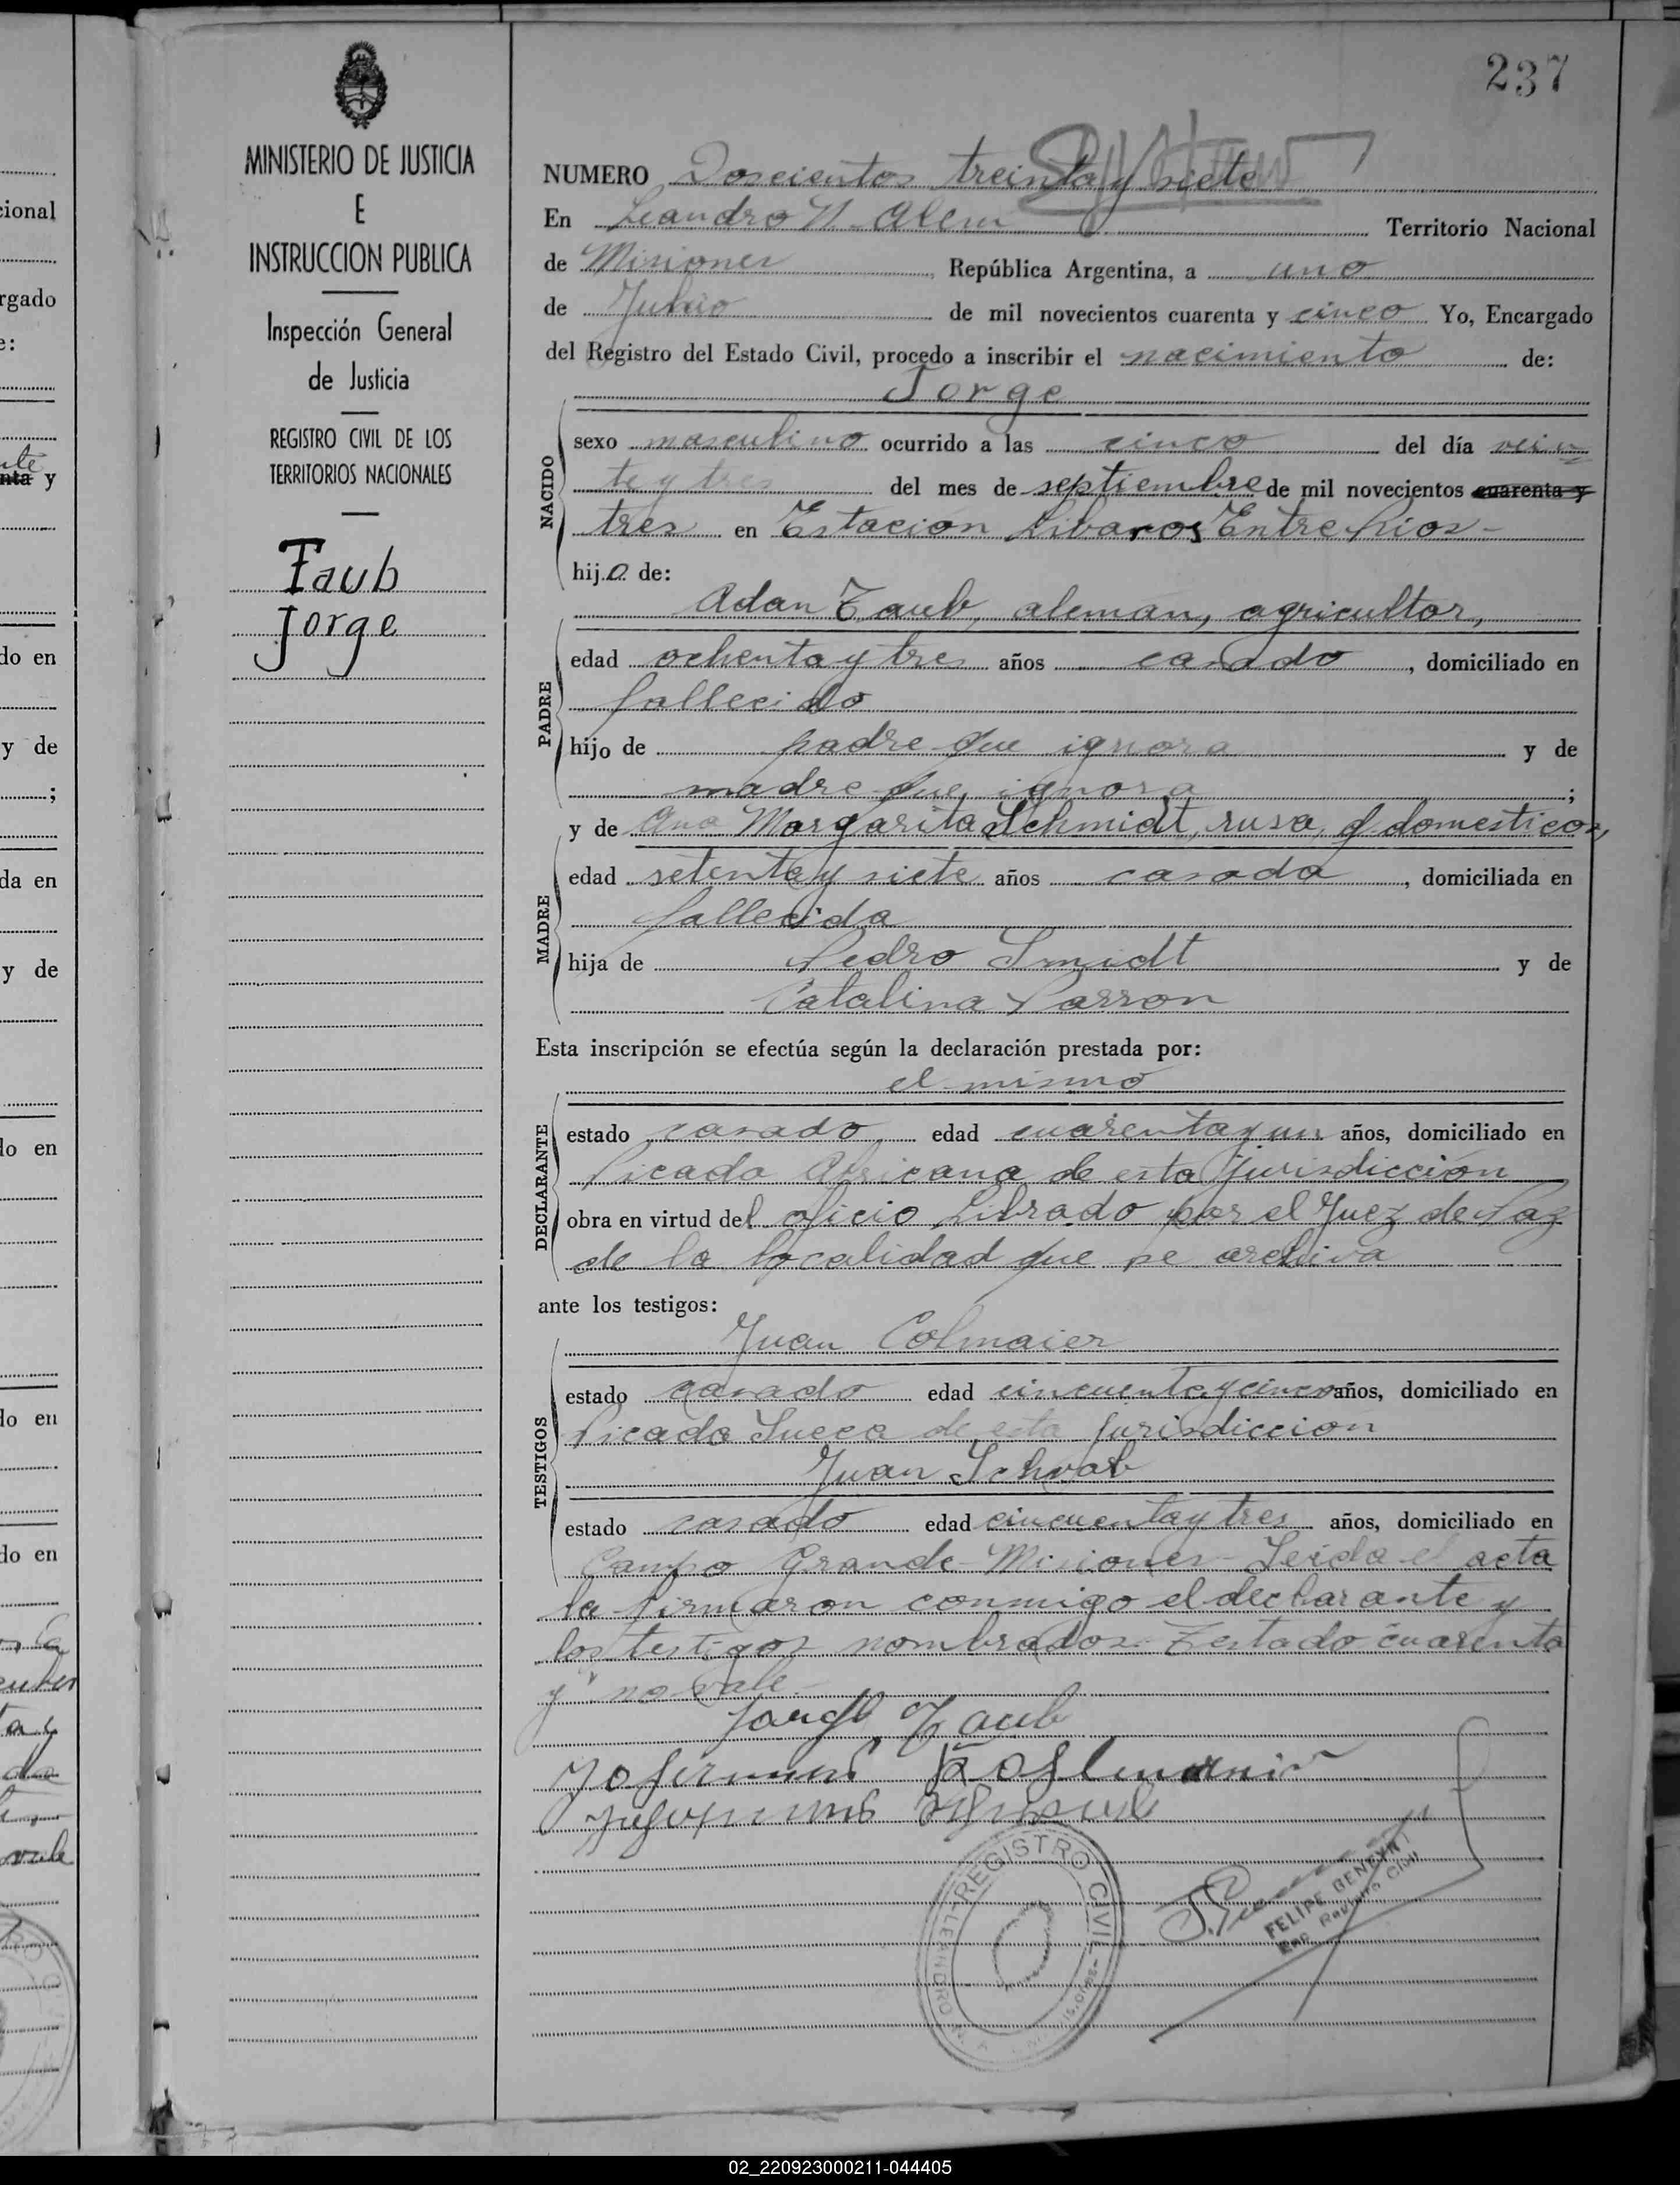 237
MINISTERIO DE JUSTICIA
E
INSTRUCCION PUBLICA
Inspección General
de Justicia
REGISTRO CIVIL DE LOS
TERRITORIOS NACIONALES
Taub
Jorge
NUMERO Doscientos treinta y siete
En Leandro N. Alem Territorio Nacional
de Misiones, República Argentina, a uno
de Junio de mil novecientos cuarenta y cinco Yo, Encargado
del Registro del Estado Civil, procedo a inscribir el nacimiento de:
Jorge
NACIDO
sexo masculino ocurrido a las cinco del día vein
te y tres del mes de septiembre de mil novecientos cuarenta y
tres en Estación Líbaros Entre Rios-
hijo de:
Adan Taub, aleman, agricultor,
PADRE
edad ochenta y tres años casado, domiciliado en
fallecido
hijo de padre que ignora y de
madre que ignora;
MADRE
y de Ana Margarita Schmidt, rusa, q domesticos,
edad setenta y siete años casada, domiciliada en
fallecida
hija de Pedro Smidt y de
Catalina Parron
Esta inscripción se efectúa según la declaración prestada por:
el mismo
DECLARANTE
estado casado edad cuarenta y un años, domiciliado en
Picada Africana de esta jurisdicción
obra en virtud del oficio librado por el Juez de Paz
de la localidad que se archiva
ante los testigos:
TESTIGOS
Juan Colmaier
estado casado edad cincuenta y cinco años, domiciliado en
Picada Sueca de esta jurisdiccion
Juan Schwab
estado casado edad cincuenta y tres años, domiciliado en
Campo Grande-Misiones- Leida el acta
la firmaron conmigo el declarante y
los testigos nombrados. Testado "cuarenta
y" no vale.-
Taub
REGISTRO CIVIL
LEANDRO N.
FELIPE BENEYN
Enc. Registro Civil
02_220923000211-044405